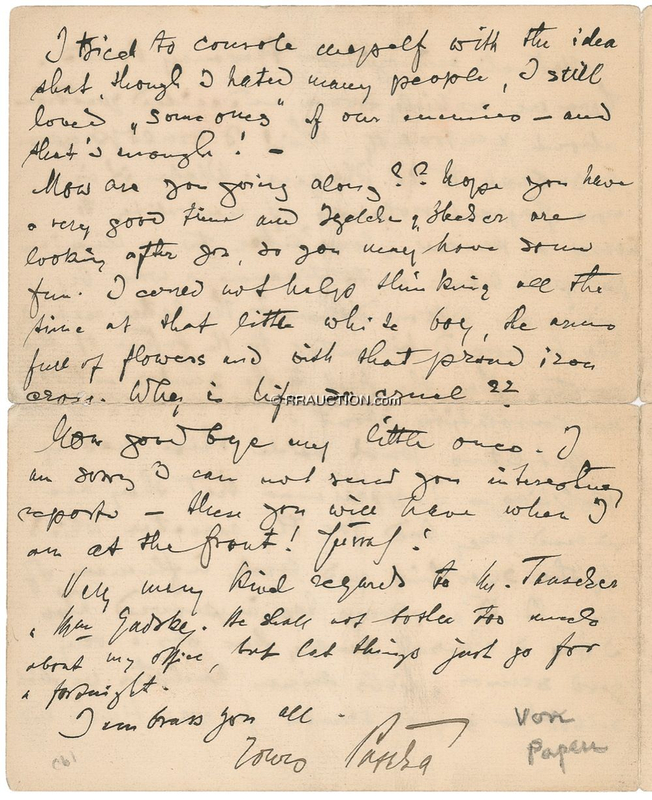 I tried to console myself with the idea
that, though I hated many people, I still
loved „some ones" of our enemies – and
that's enough! –
How are you going along?? hope you have
a very good time and & Hecker are
looking after you, so you may have some
fun. I could not help thinking all the
time at that little white boy, the arms
full of flowers and with that proud iron
cross. Why is life so cruel ??
© RRAUCTION.com
Now good bye my little ones. I
am sorry I can not send you interesting
reports – these you will have when I
am at the front! !
Very many kind regards to Mr. Tauscher
& Mme Gadsky. He shall not bother too much
about my office, but let things just go for
a fortnight.
I embrass you all.
Yours
Von
Papen